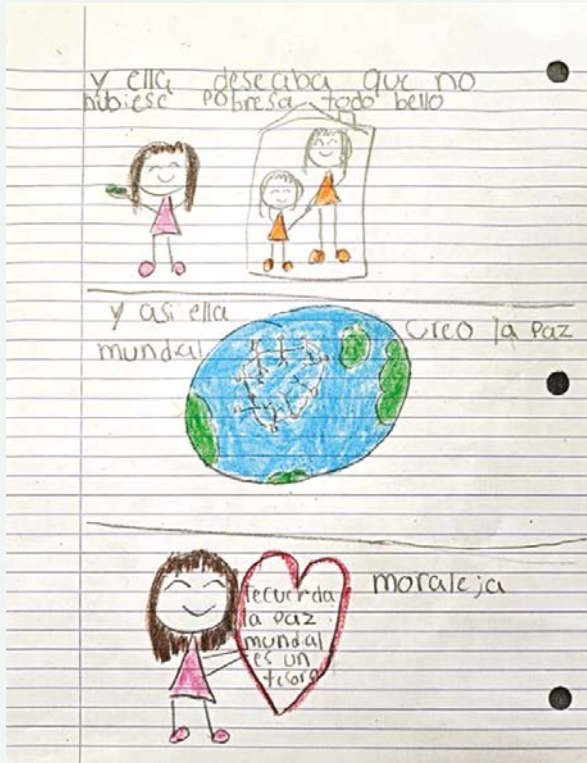 y ella deseaba que no
hubiese pobresa todo bello
y asi ella creo la paz
mundial
moraleja
recuerda
la paz
mundial
es un
tesoro